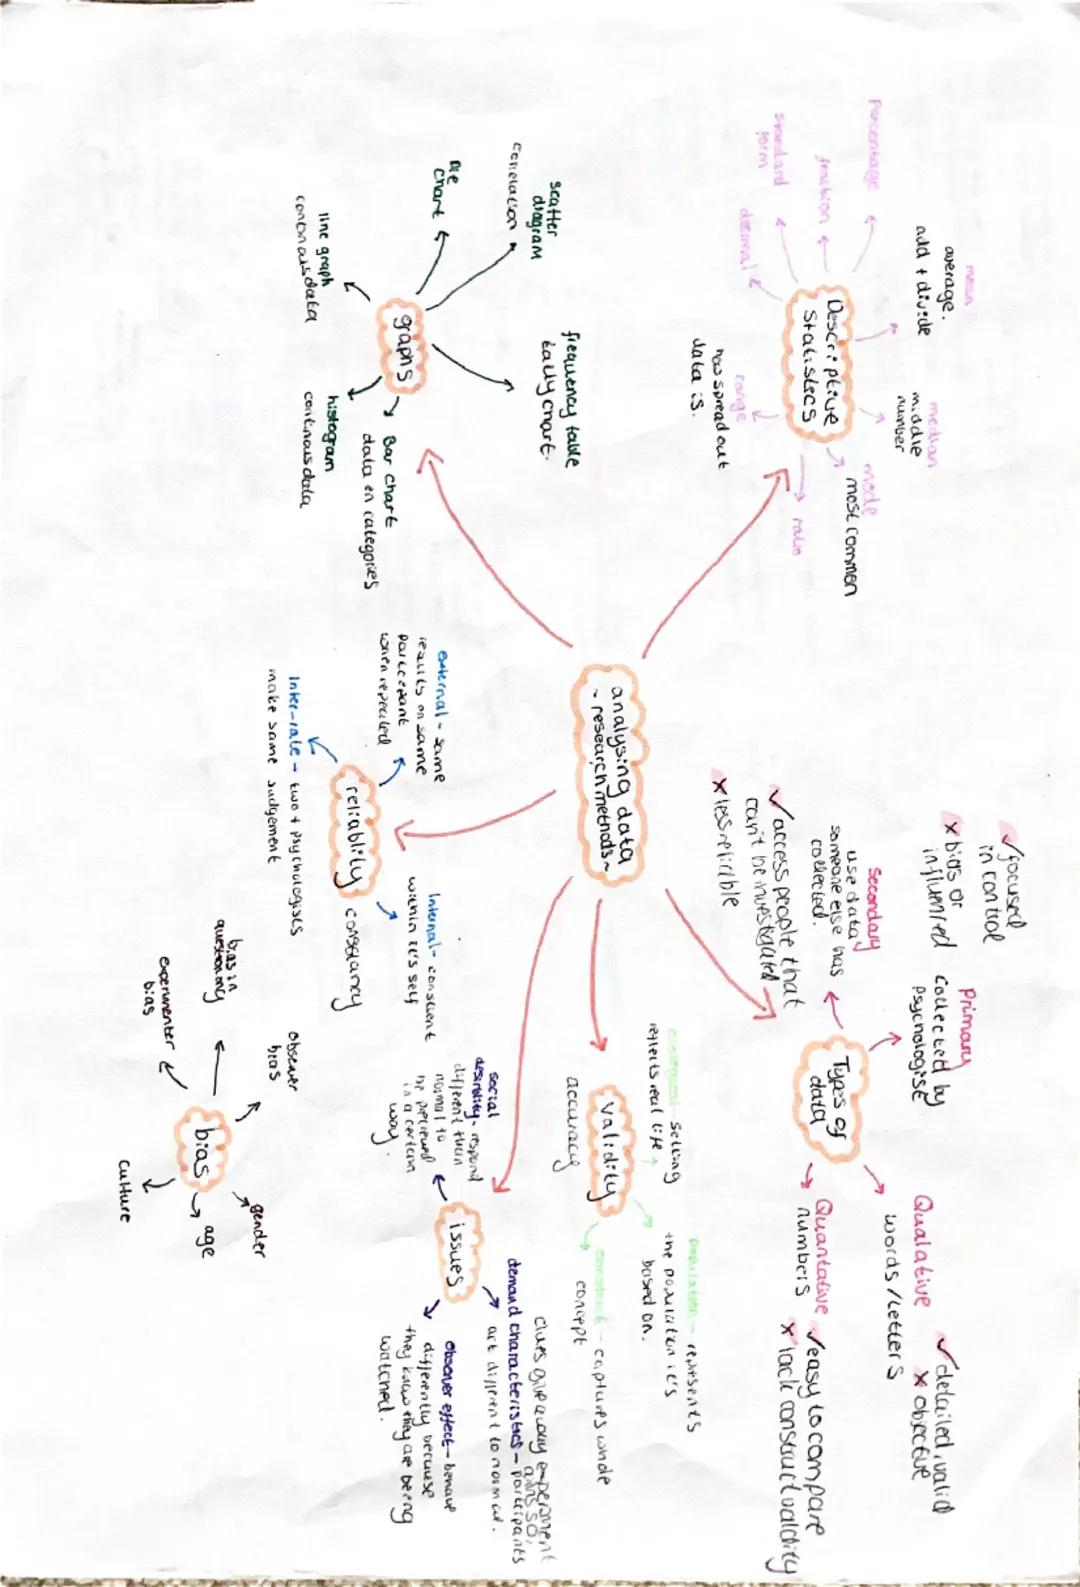 analysing data
~ research methods ~
Descriptive
Statistics
mean
average.
add + divide
median
middle
number
mode
most common
ratio
range
how spread out
data is.
decimal
standard
form
fraction
Percentage
graphs
scatter
diagram
correlation
pie
chart
line graph
histogram
Bar chart
data in categories
frequency table
tally chart.
Types of
data
Primary
collected by
✓ focused
in control
x bias or
Secondary
use data
someone else has
collected.
✓ access people that
can't be investigated
x less reliable
Qualative
words / letters
✓ detailed, valid
x objective
Quantative
numbers
✓ easy to compare
x lack construct validity
validity
accuracy
ecological - setting
reflects real life
population - represents
the population it's
based on.
construct - captures whole
concept
reliability
consistancy
external - same
results on same
when repeated
Internal - consistent
within it's self
Inter-rate - two + psychologists
make same judgement
issues
social
desirability - respond
different than
normal to
be perceived
in a certain
way.
clues give away experiment
demand characteristics - participants
act different to normal.
observer effect - behave
differently because
they know they are being
watched.
bias
gender
age
culture
experimenter
bias
bias in
questioning
observer
bias